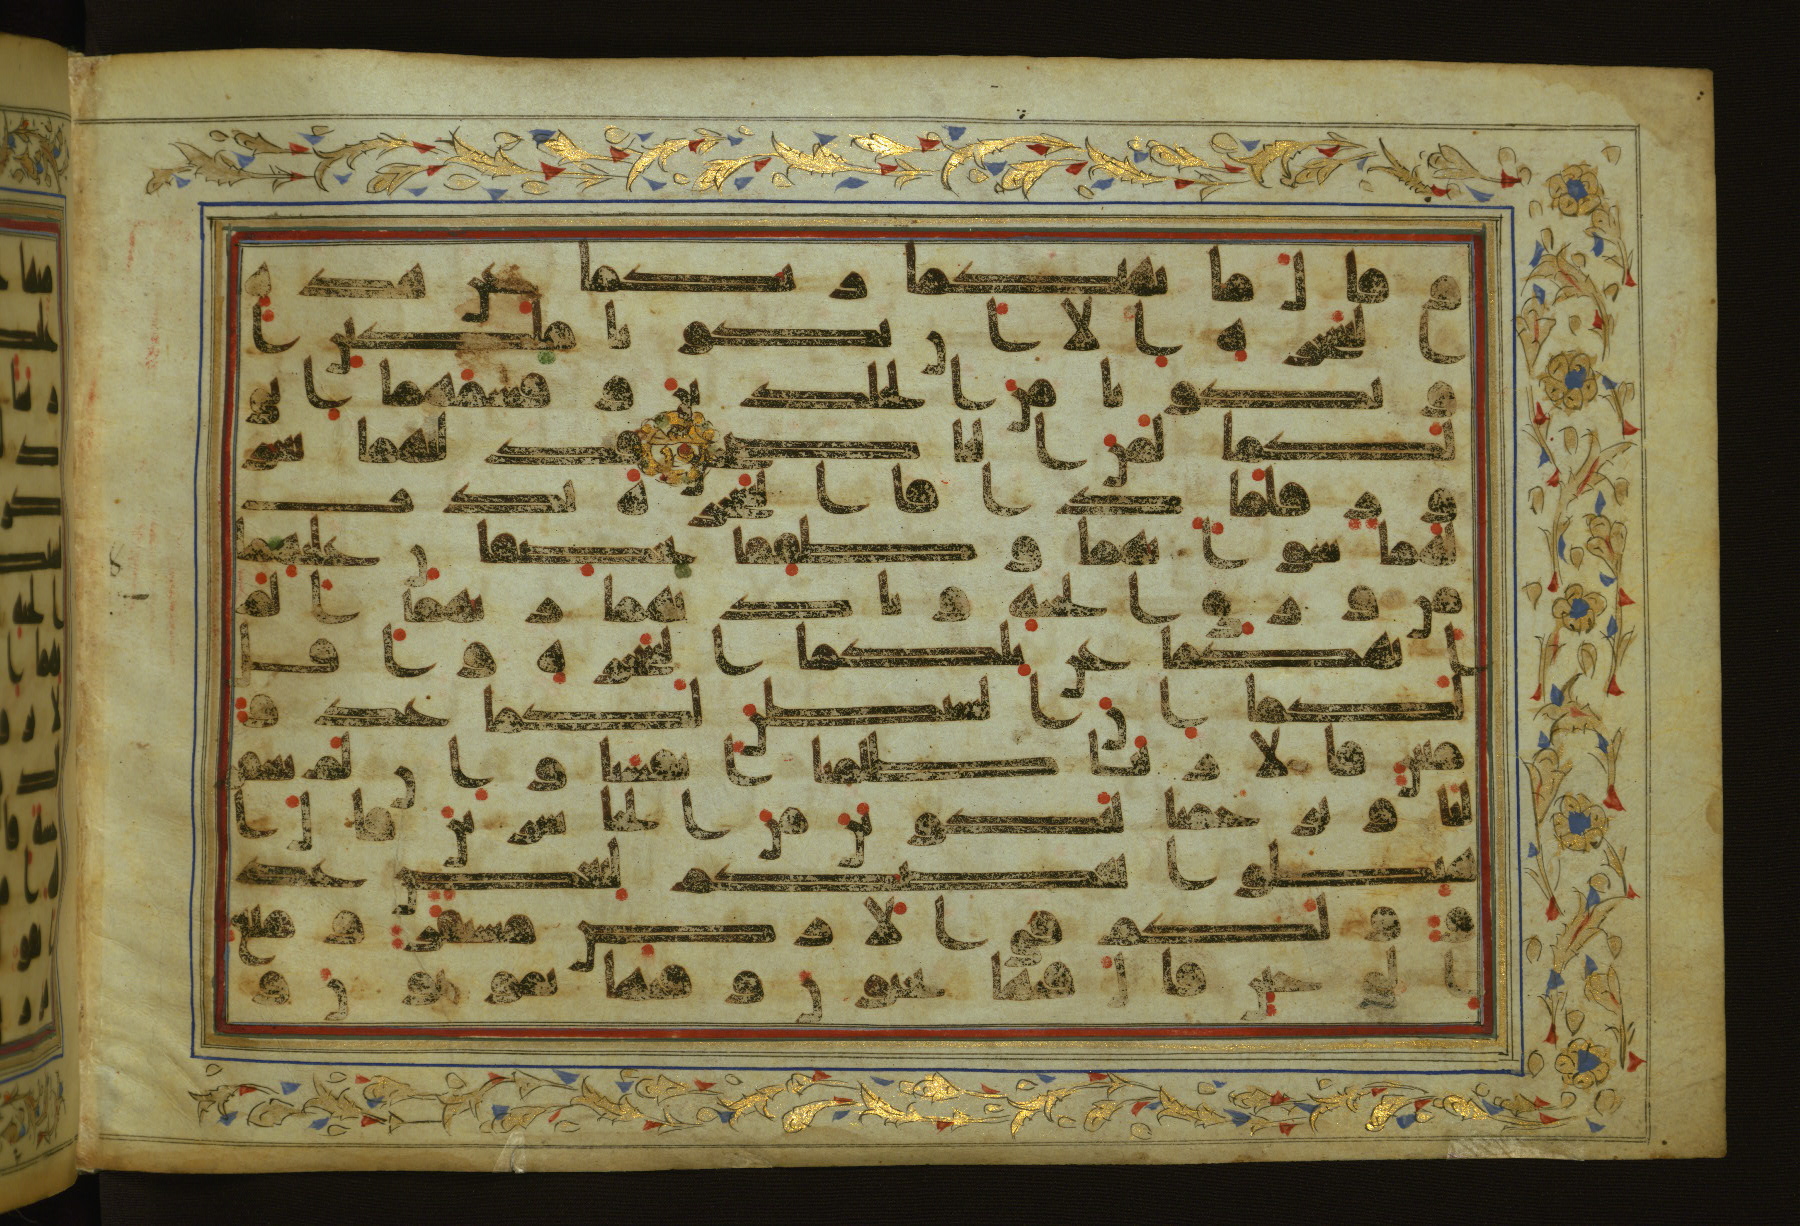 و قال ما نهكما ربكما عن هذه
الشجرة الا ان تكونا ملكين ا
و تكونا من الخلدين وقسمهما اني
لكما لمن النصحين فدلهما بغر
ور فلما ذاقا الشجرة بدت
لهما سواتهما وطفقا يخصفن عليهما
من ورق الجنة وناديهما ربهما الم
انهكما عن تلكما الشجرة واقل
لكما ان الشيطن لكما عدو
مبين قالا ربنا ظلمنا انفسنا وان لم تغفر
لنا وترحمنا لنكونن من الخسرين قال ا
هبطوا بعضكم لبعض عد
و ولكم في الارض مستقر ومتع
الى حين قال فيها تحيون وفيها تموتون و